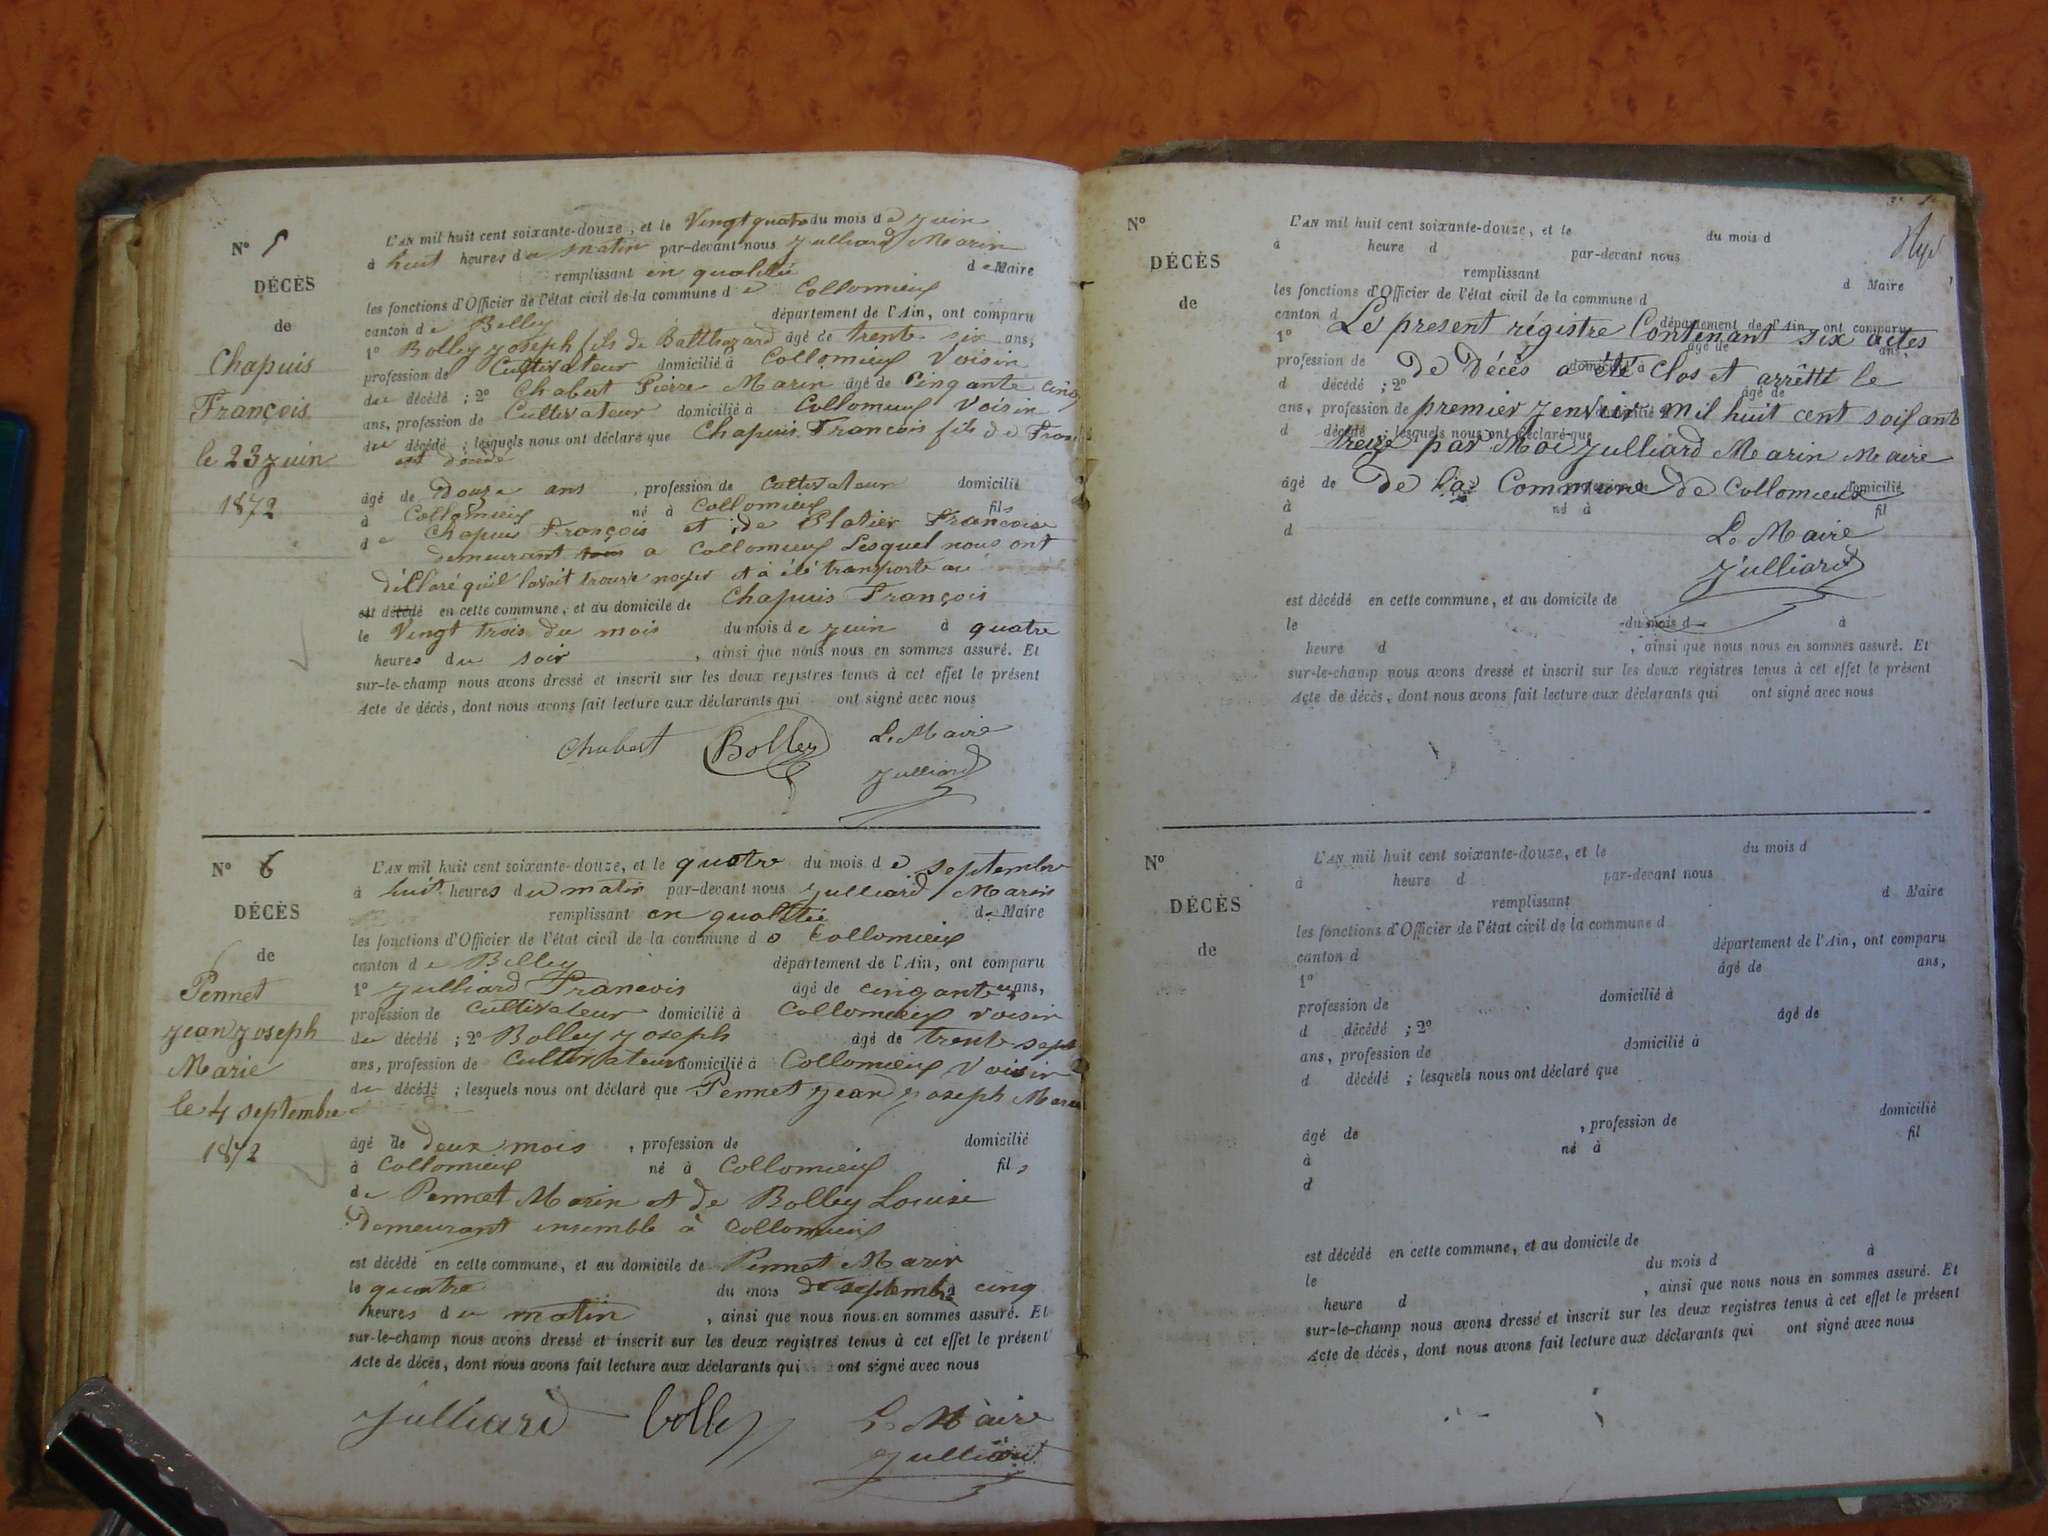 N° 5
DÉCÈS
de
Chapuis
François
le 23 juin
1872
L'AN mil huit cent soixante-douze, et le Vingt quatre du mois de juin
à huit heures du matin par-devant nous Julliard Marin
remplissant en qualitée de Maire
les fonctions d'Officier de l'état civil de la commune de Collomieux
canton de Belley département de l'Ain, ont comparu
1° Bolley Joseph fils de Balthazard âgé de trente six ans,
profession de Cultivateur domicilié à Collomieux Voisin
du décédé ; 2° Chabert Pierre Marin âgé de Cinqante cinq
ans, profession de Cultivateur domicilié à Collomieux Voisin
du décédé ; lesquels nous ont déclaré que Chapuis Francois fils de Fran
est décédé
âgé de Douze ans , profession de Cultivateur domicilié
à Collomieux né à Collomieux fils
de Chapuis François et de Platier Francoise
demeurant a Collomieux Lesquel nous ont
déclaré qu'il lavait trouve noyer et a été transporté au
est décédé en cette commune, et au domicile de Chapuis François
le Vingt trois du mois du mois de juin à quatre
heures du soir , ainsi que nous nous en sommes assuré. Et
sur-le-champ nous avons dressé et inscrit sur les deux registres tenus à cet effet le présent
Acte de décès, dont nous avons fait lecture aux déclarants qui ont signé avec nous
Chabert Bolley Le Maire
Julliard
N° 6
DÉCÈS
de
Pennet
Jean Joseph
Marie
le 4 septembre
1872
L'AN mil huit cent soixante-douze, et le quatre du mois de septembre
à huit heures du matin par-devant nous Julliard Marin
remplissant en qualitée de Maire
les fonctions d'Officier de l'état civil de la commune de Collomieux
canton de Belley département de l'Ain, ont comparu
1° Julliard Francois âgé de cinqante ans,
profession de Cultivateur domicilié à Collomieux voisin
du décédé ; 2° Bolley Joseph âgé de trente sept
ans, profession de Cultivateur domicilié à Collomieux Voisin
du décédé ; lesquels nous ont déclaré que Pennet Jean Joseph Marie
âgé de deux mois , profession de domicilié
à Collomieux né à Collomieux fils
de Pennet Marin et de Bolley Louise
demeurant ensemble à Collomieux
est décédé en cette commune, et au domicile de Pennet Marin
le quatre du mois de septembre cinq
heures du matin , ainsi que nous nous en sommes assuré. Et
sur-le-champ nous avons dressé et inscrit sur les deux registres tenus à cet effet le présent
Acte de décès, dont nous avons fait lecture aux déclarants qui ont signé avec nous
Julliard bolley Le Maire
Julliard
N°
DÉCÈS
de
L'AN mil huit cent soixante-douze, et le du mois d
à heure d par-devant nous
remplissant d Maire
les fonctions d'Officier de l'état civil de la commune d
canton d département de l'Ain, ont comparu
1° Le present régistre Contenant six actes
âgé de ans,
profession de domicilié à
de Décès a été Clos et arrêtté le
d décédé ; 2° âgé de
ans, profession de domicilié à
premier Jenvier mil huit cent soixante
d décédé ; lesquels nous ont déclaré que
treize par Moi Julliard Marin Maire
âgé de , profession de domicilié
De la Commune de Collomieux
à né à fil
d
Le Maire
Julliard
est décédé en cette commune, et au domicile de
le du mois d à
heure d , ainsi que nous nous en sommes assuré. Et
sur-le-champ nous avons dressé et inscrit sur les deux registres tenus à cet effet le présent
Acte de décès, dont nous avons fait lecture aux déclarants qui ont signé avec nous
N°
DÉCÈS
de
L'AN mil huit cent soixante-douze, et le du mois d
à heure d par-devant nous
remplissant d Maire
les fonctions d'Officier de l'état civil de la commune d
canton d département de l'Ain, ont comparu
1° âgé de ans,
profession de domicilié à
d décédé ; 2° âgé de
ans, profession de domicilié à
d décédé ; lesquels nous ont déclaré que
âgé de , profession de domicilié
à né à fil
d
est décédé en cette commune, et au domicile de
le du mois d à
heure d , ainsi que nous nous en sommes assuré. Et
sur-le-champ nous avons dressé et inscrit sur les deux registres tenus à cet effet le présent
Acte de décès, dont nous avons fait lecture aux déclarants qui ont signé avec nous